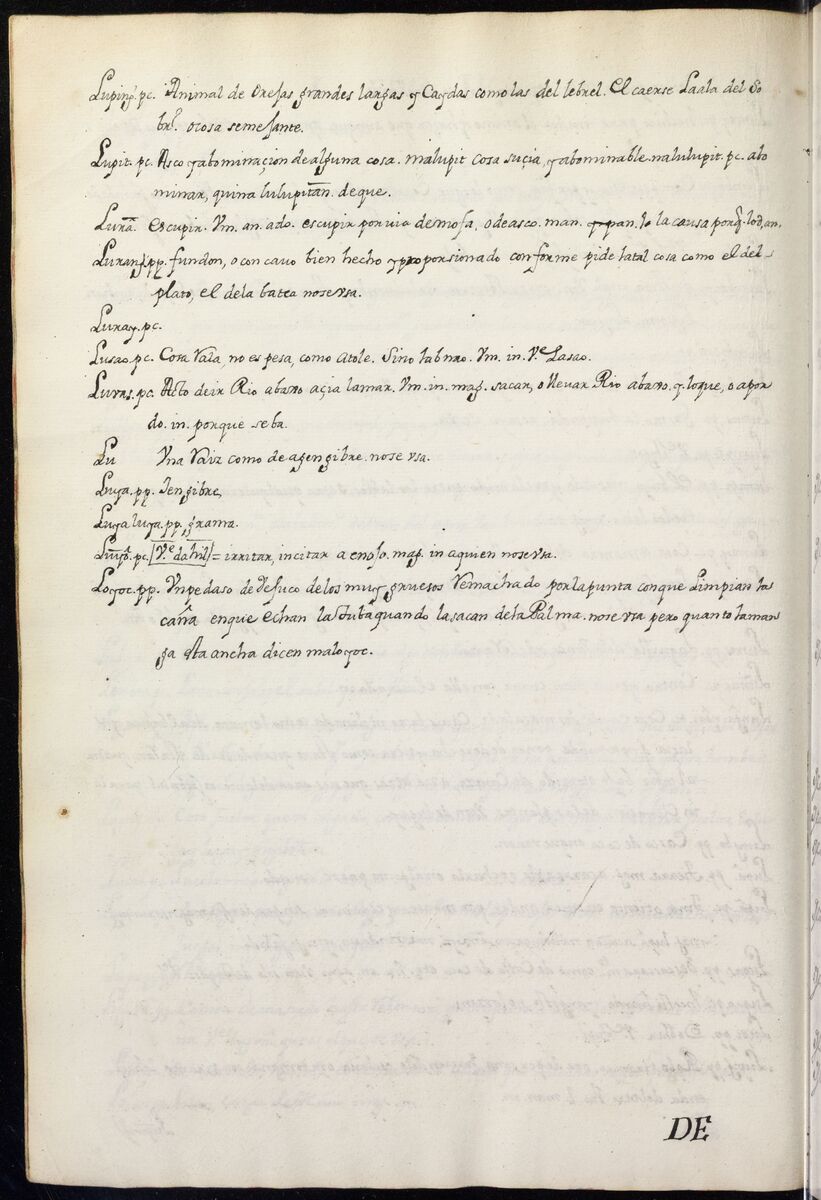 Lupinḡ. pc. Animal de orejas grandes largas y Caydas como las del lebrel. el caerse La ala del So
brº. o cosa semejante.
Lupit. pc. Asco y abominaçion de alguna cosa. malupit cosa suçia, y abominable nalulupit. pc. abo
minar, quina lulupitan. de que.
Lura. escupir. Vm. an. ado. escupir por via de mofa, o de asco. man. y pan. la causa porq̃. lod, an.
Lurang̃ pp. fundon, o con cavo bien hecho y proporsionado conforme pide la tal cosa como el del
plato, el dela batea no se vsa.
Luray. pc.
Lusao. pc. Cosa Rala, no espesa, como atole. Sino labnao. Vm. in. Vᵉ. Lasao.
Luras. pc. Acto de ir Rio abaxo açia la mar. Vm. in. mag. sacar, o llevar Rio abaxo. y. loque, o apor
do. in. porque se ba.
Lu Vna Raiz como de agengibre. no se vsa.
Luya. pp. Jengibre,
Luya luya. pp. grama.
pc. [Vᵉ. dahil] = irritar, incitar a enojo. mag. in aquien no se vsa.
Loyoc. pp. Vn pedaso de Vejuco delos muy gruesos Remachado por la punta con que Limpian la
caña en que echan la tuba quando la sacan dela Palma. no se vsa pero quanto la man
ga sta ancha dicen maloyoc.
DE